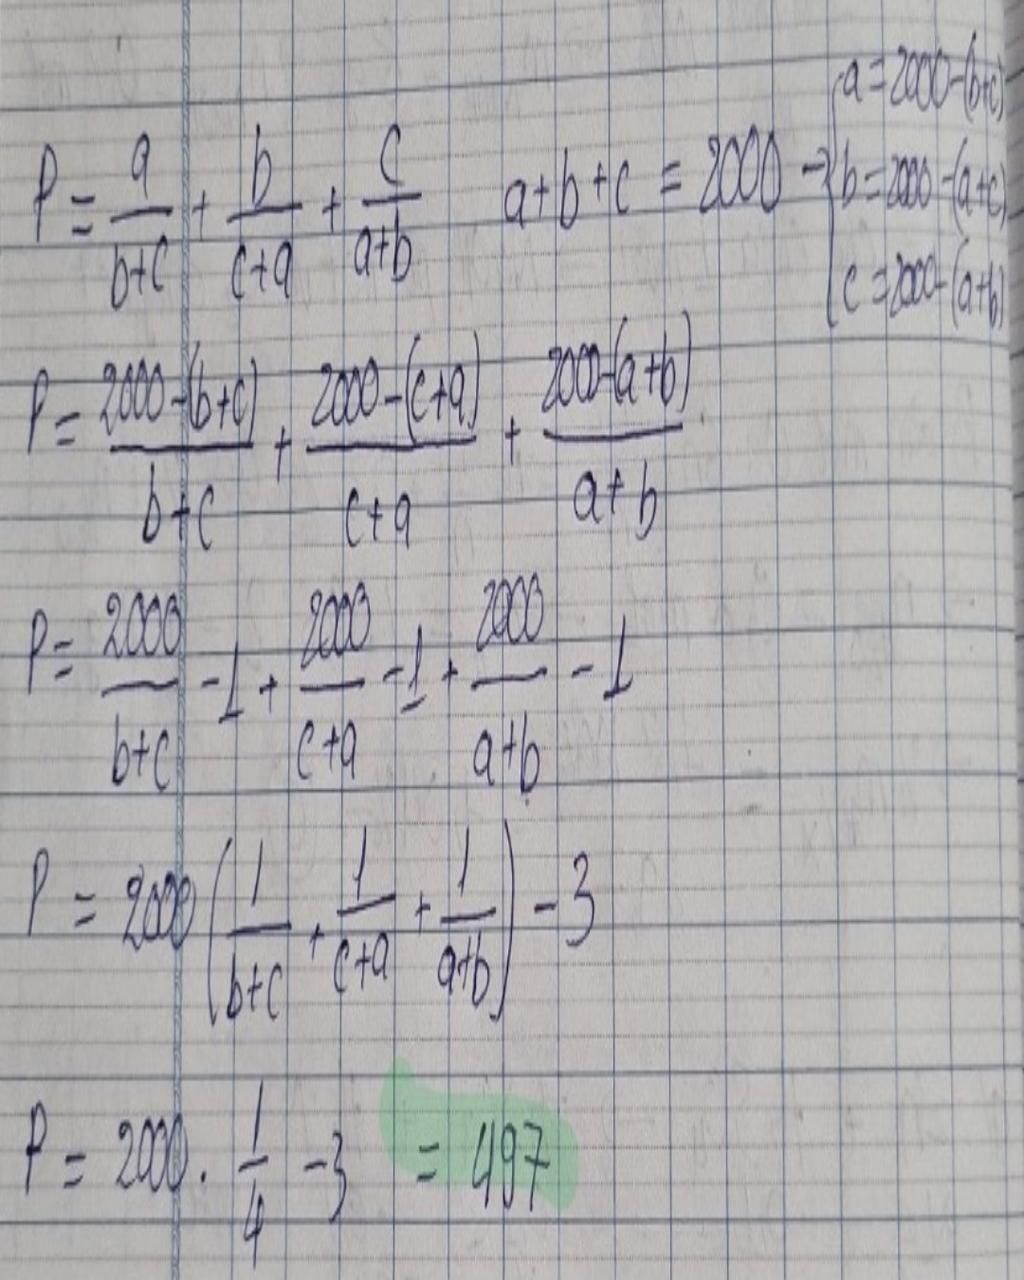 P = a/(b+c) + b/(c+a) + c/(a+b)   a+b+c = 2000 → { a = 2000-(b+c)
b = 2000-(a+c)
c = 2000-(a+b)
P = (2000-(b+c))/(b+c) + (2000-(c+a))/(c+a) + (2000-(a+b))/(a+b)
P = 2000/(b+c) -1 + 2000/(c+a) -1 + 2000/(a+b) -1
P = 2000 (1/(b+c) + 1/(c+a) + 1/(a+b)) - 3
P = 2000 . 1/4 - 3 = 497